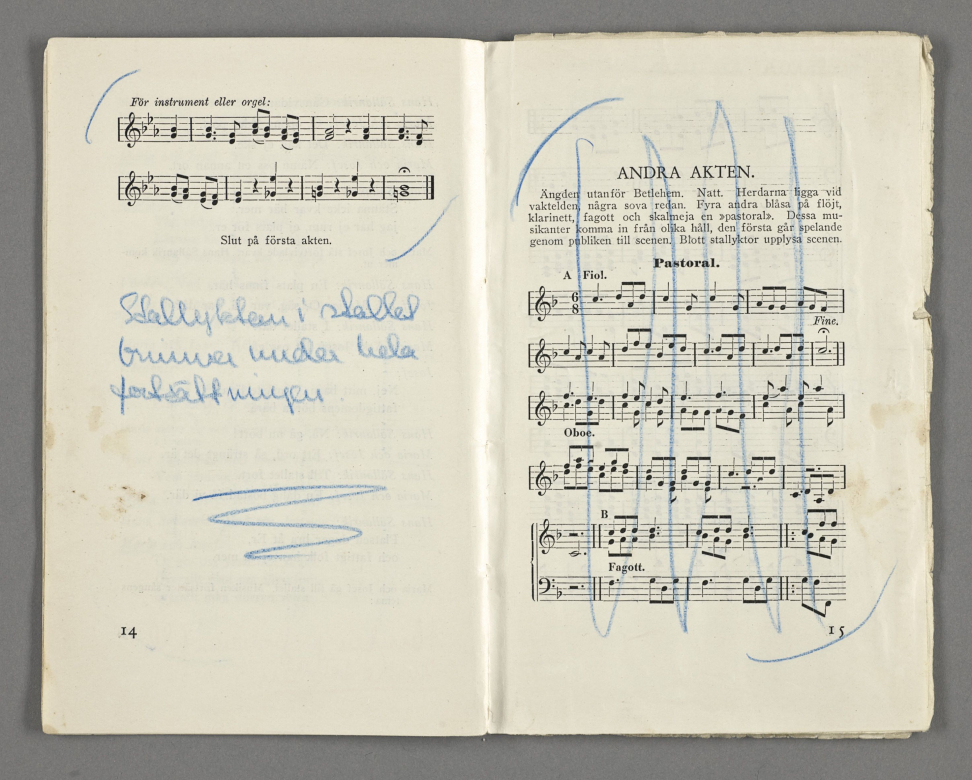 För instrument eller orgel:
Slut på första akten.
Stallyktan i stallet
brinner under hela
fortsättningen
14
ANDRA AKTEN.
Ängden utanför Betlehem. Natt. Herdarna ligga vid
vaktelden, några sova redan. Fyra andra blåsa på flöjt,
klarinett, fagott och skalmeja en »pastoral». Dessa mu-
sikanter komma in från olika håll, den första går spelande
genom publiken till scenen. Blott stallyktor upplysa scenen.
Pastoral.
A Fiol.
6
8
Fine.
Oboe.
B
Fagott.
15